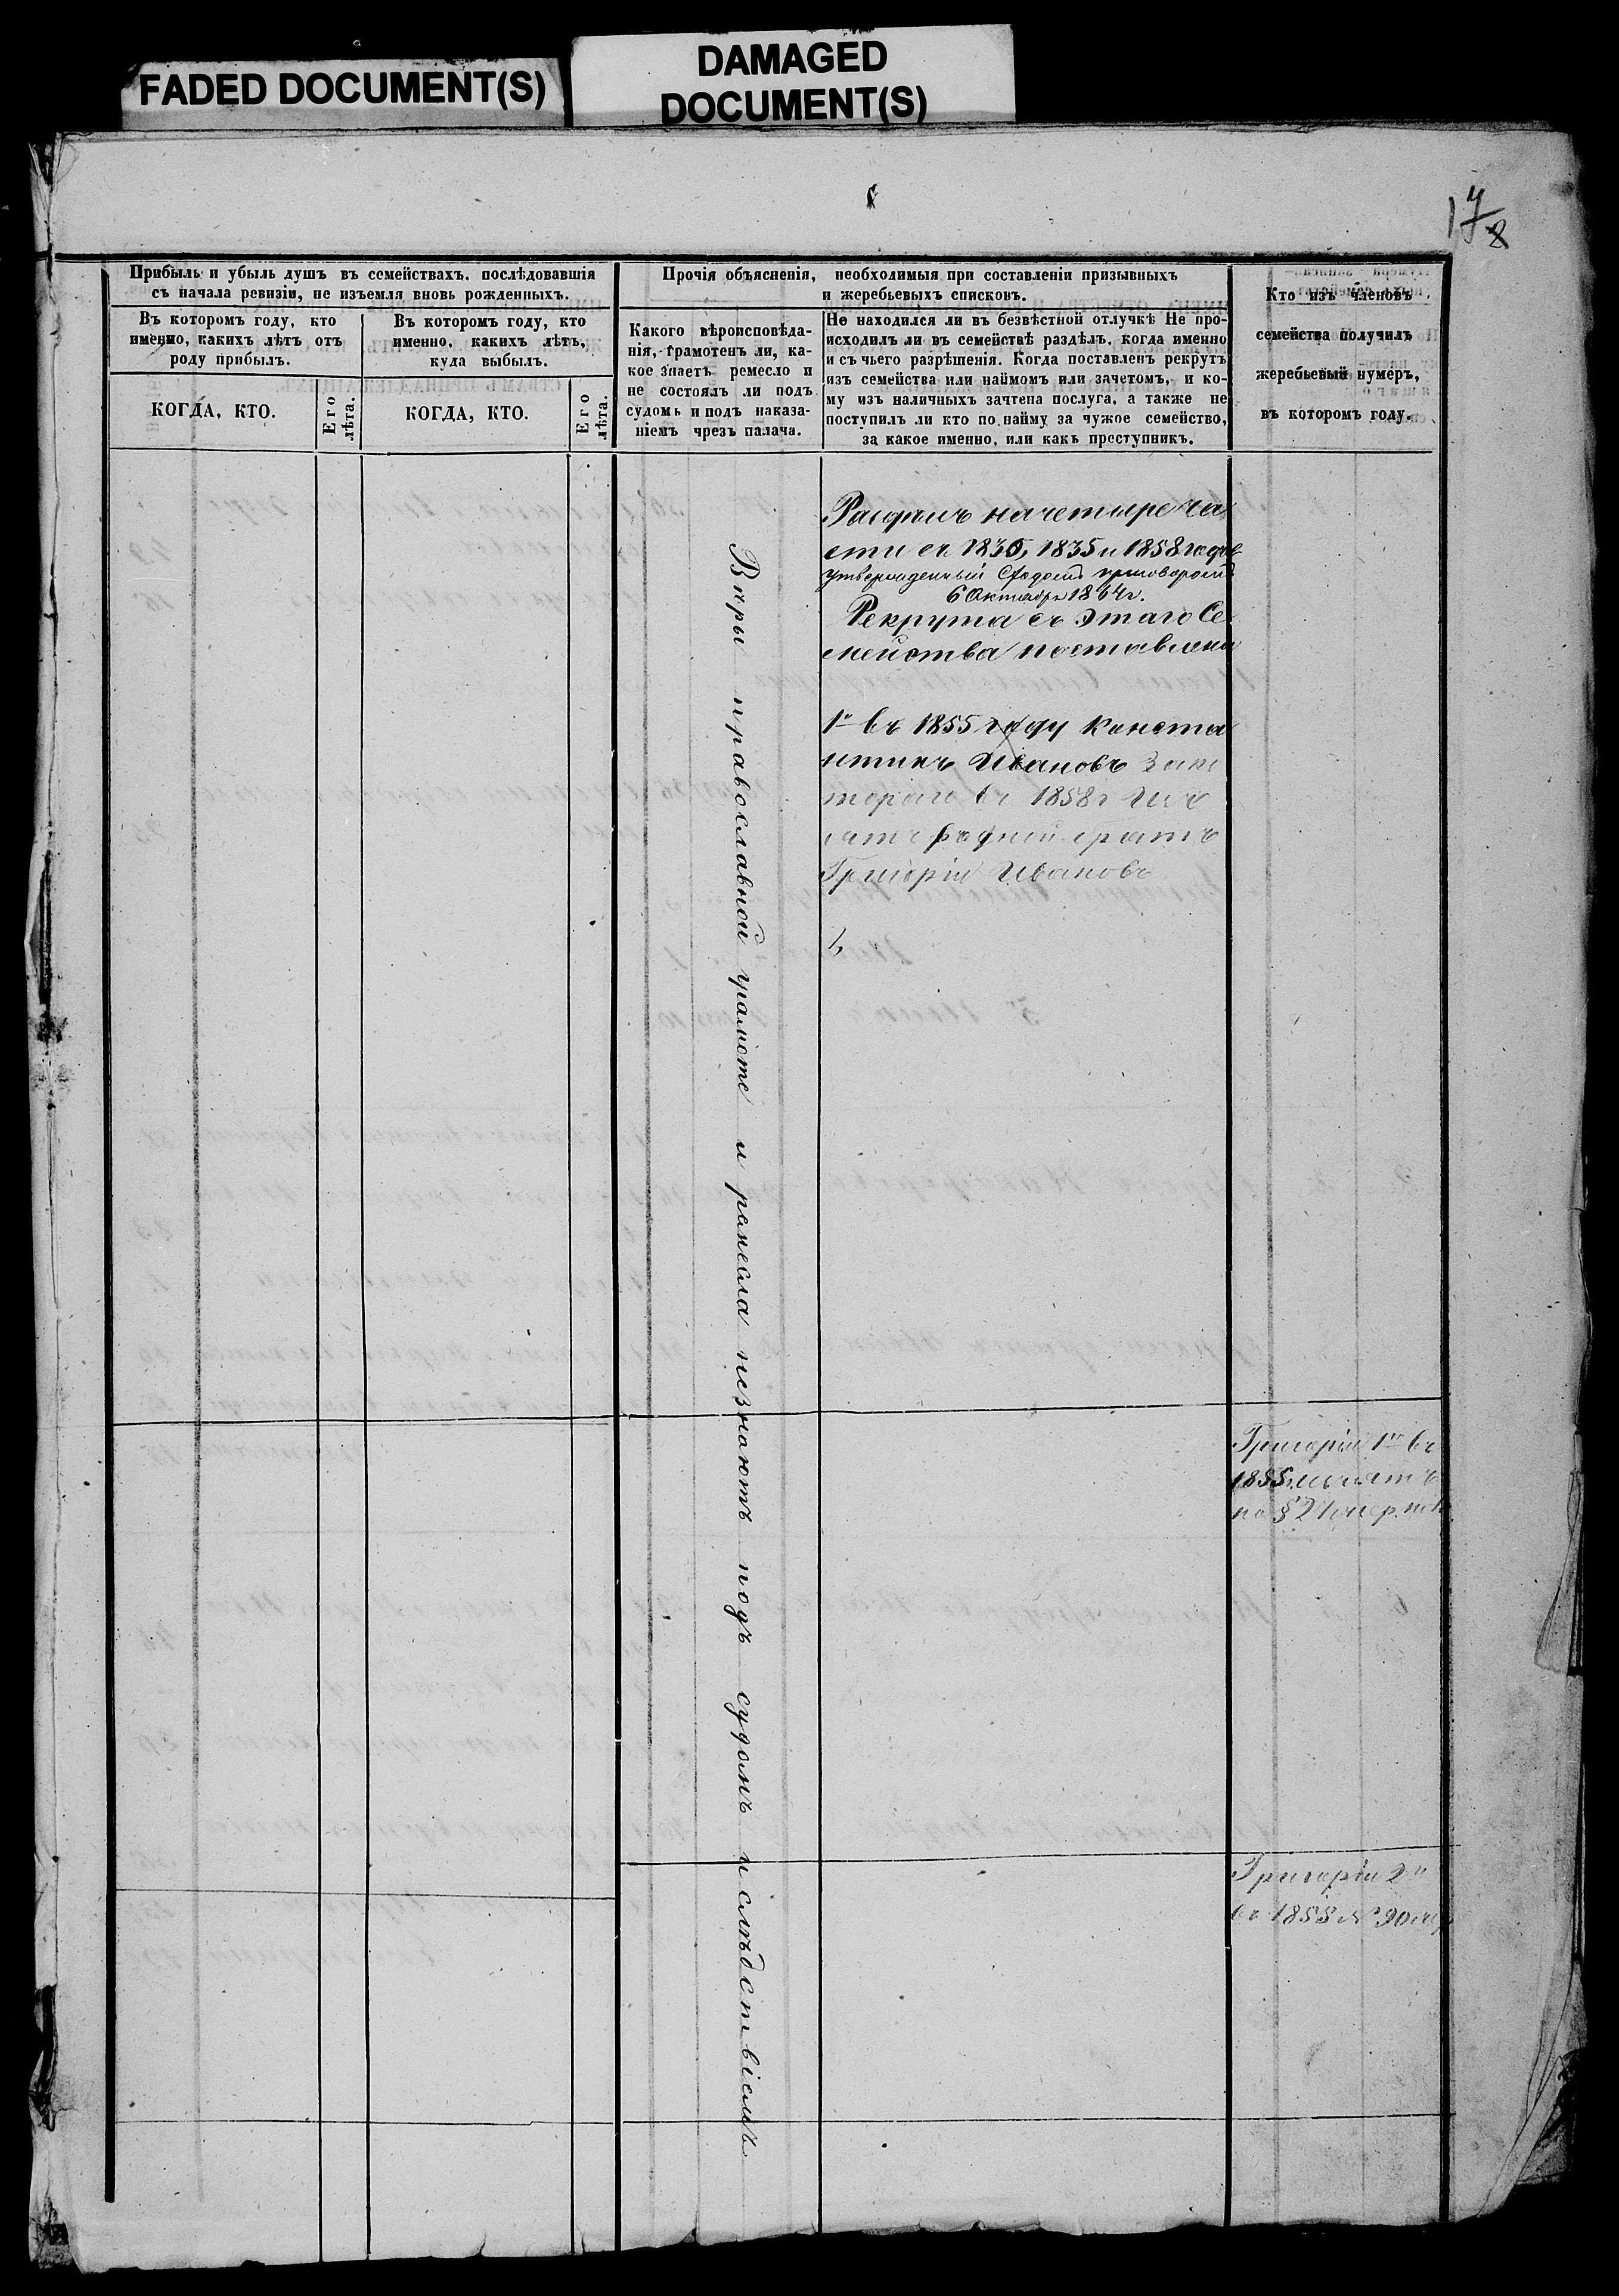 FADED DOCUMENT(S)
DAMAGED
DOCUMENT(S)
17
8
Прибыль и убыль душъ въ семействахъ, послѣдовавшія
съ начала ревизіи, не изъемля вновь рожденныхъ.
Въ которомъ году, кто
именно, какихъ лѣтъ отъ
роду прибылъ.
Въ которомъ году, кто
именно, какихъ лѣтъ,
куда выбылъ.
КОГДА, КТО.
Его
лѣта.
КОГДА, КТО.
Его
лѣта.
Прочія объясненія, необходимыя при составленіи призывныхъ
и жеребьевыхъ списковъ.
Какого вѣроисповѣда-
нія, грамотенъ ли, ка-
кое знаетъ ремесло и
не состоялъ ли подъ
судомъ и подъ наказа-
ніемъ чрезъ палача.
Не находился ли въ безвѣстной отлучкѣ Не про-
исходилъ ли въ семействѣ раздѣлъ, когда именно
и съ чьего разрѣшенія. Когда поставленъ рекрутъ
изъ семейства или наймомъ или зачетомъ, и ко-
му изъ наличныхъ зачтена послуга, а также не
поступилъ ли кто по найму за чужое семейство,
за какое именно, или какъ преступникъ.
Кто изъ членовъ
семейства получилъ
жеребьевый нумеръ,
въ которомъ году.
Вѣры православной грамоте и ремесла незнаютъ подъ судомъ и слѣдствіемъ
на четыре ча
сти съ 1835 и 1858 годов
утвержденный приговоромъ
6 Октября 1864 г.
Рекрута съ этаго Се
мейства поставлена
1й въ 1855 году Конста
нтинъ Ивановъ За ко
тораго въ 1858 г
родной братъ
Григорій Ивановъ
Григорій 1й въ
1855
по § 21
Григорій 2й
въ 1855 № 90